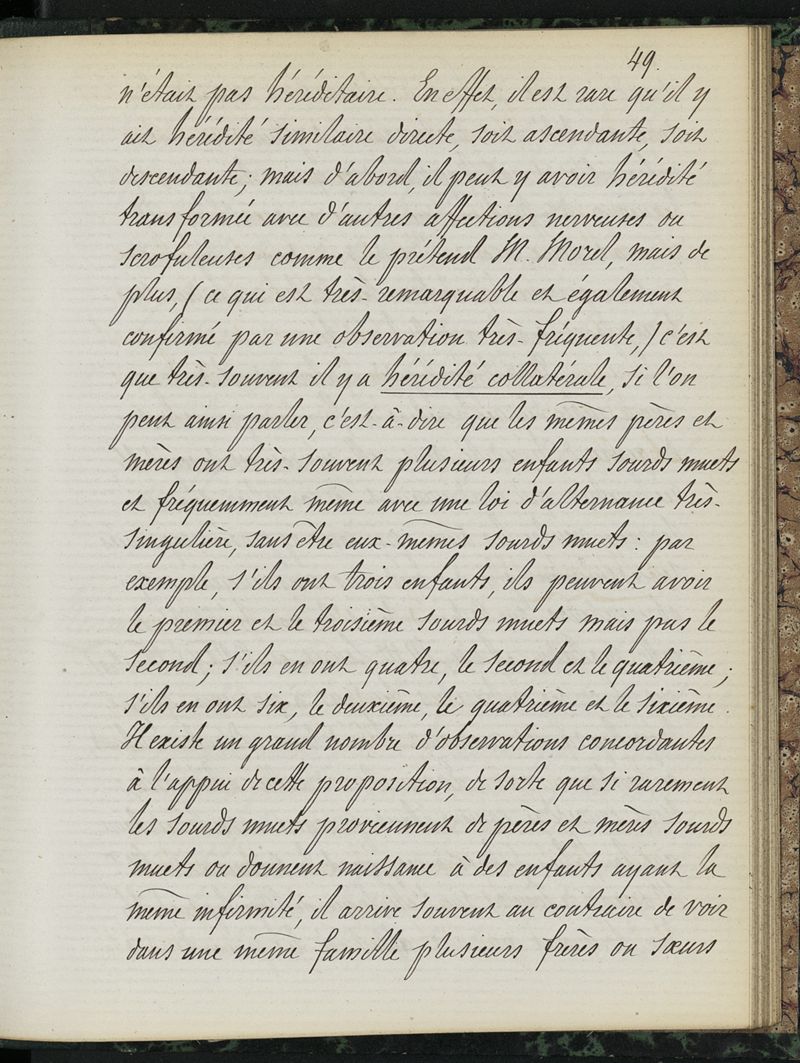 49.
n'était pas héréditaire. En effet, il est rare qu'il y
ait hérédité similaire directe, soit ascendante, soit
descendante; mais d'abord, il peut y avoir hérédité
transformée avec d'autres affections nerveuses ou
scrofuleuses comme le prétend M. Morel, mais de
plus, (ce qui est très-remarquable et également
confirmé par une observation très-fréquente,) c'est
que très-souvent il y a hérédité collatérale, si l'on
peut ainsi parler, c'est-à-dire que les mêmes pères et
mères ont très-souvent plusieurs enfants sourds muets
et fréquemment même avec une loi d'alternance très-
singulière, sans être eux-mêmes sourds muets: par
exemple, s'ils ont trois enfants, ils peuvent avoir
le premier et le troisième sourds muets mais pas le
second; s'ils en ont quatre, le second et le quatrième;
s'ils en ont six, le deuxième, le quatrième et le sixième.
Il existe un grand nombre d'observations concordantes
à l'appui de cette proposition, de sorte que si rarement
les sourds muets proviennent de pères et mères sourds
muets ou donnent naissance à des enfants ayant la
même infirmité, il arrive souvent au contraire de voir
dans une même famille plusieurs frères ou sœurs